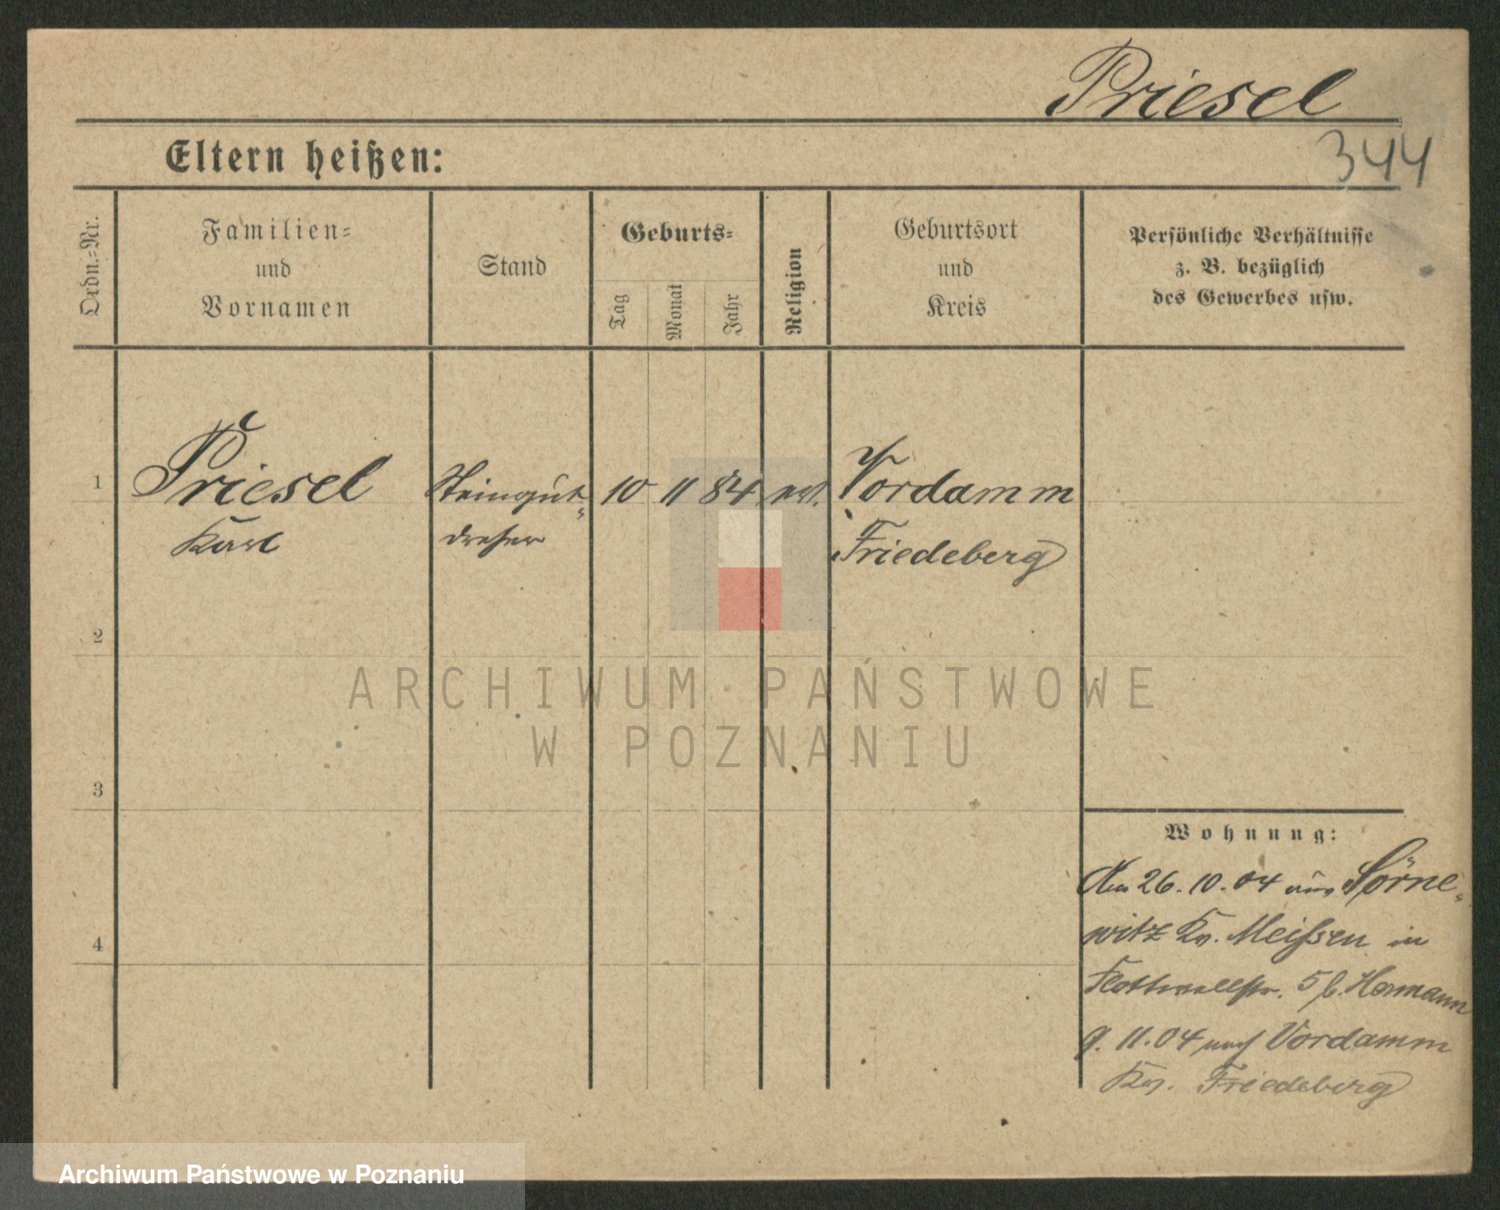 Priesel
344
Eltern heißen:
Ordn.-Nr.
Familien-
und
Vornamen
Stand
Geburts-
Tag
Monat
Jahr
Religion
Geburtsort
und
Kreis
Persönliche Verhältnisse
z. B. bezüglich
des Gewerbes usw.
1
Priesel
Karl
Steingut-
dreher
10 11 84
Vordamm
Friedeberg
2
3
4
Wohnung:
Am 26.10.04 aus Sörne-
witz Kr. Meißen in
Flottwellstr. 5 b. Hermann
9.11.04 nach Vordamm
Kr. Friedeberg
ARCHIWUM PAŃSTWOWE
W POZNANIU
Archiwum Państwowe w Poznaniu